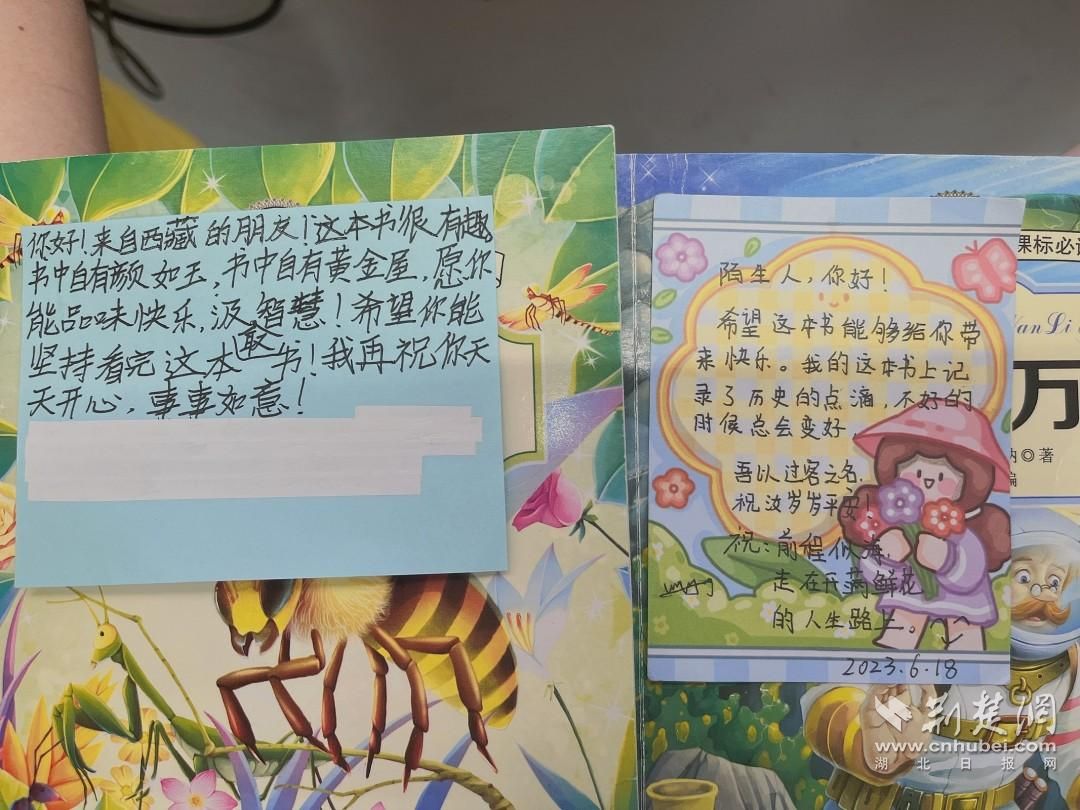 你好！来自西藏的朋友！这本书很有趣。
书中自有颜如玉，书中自有黄金屋，愿你
能品味快乐，汲智慧！希望你能
坚持看完这本
书！我再祝你天
天开心，事事如意！
陌生人，你好！
希望这本书能够给你带
来快乐。我的这本书上记
录了历史的点滴，不好的
时候总会变好
吾以过客之名，
祝汝岁岁平安！
祝：前程似海，
走在开满鲜花
的人生路上。
2023.6.18
课标必读
Wan Li
万
纳◎著
编
荆楚网
www.cnhubei.com
湖北日报网